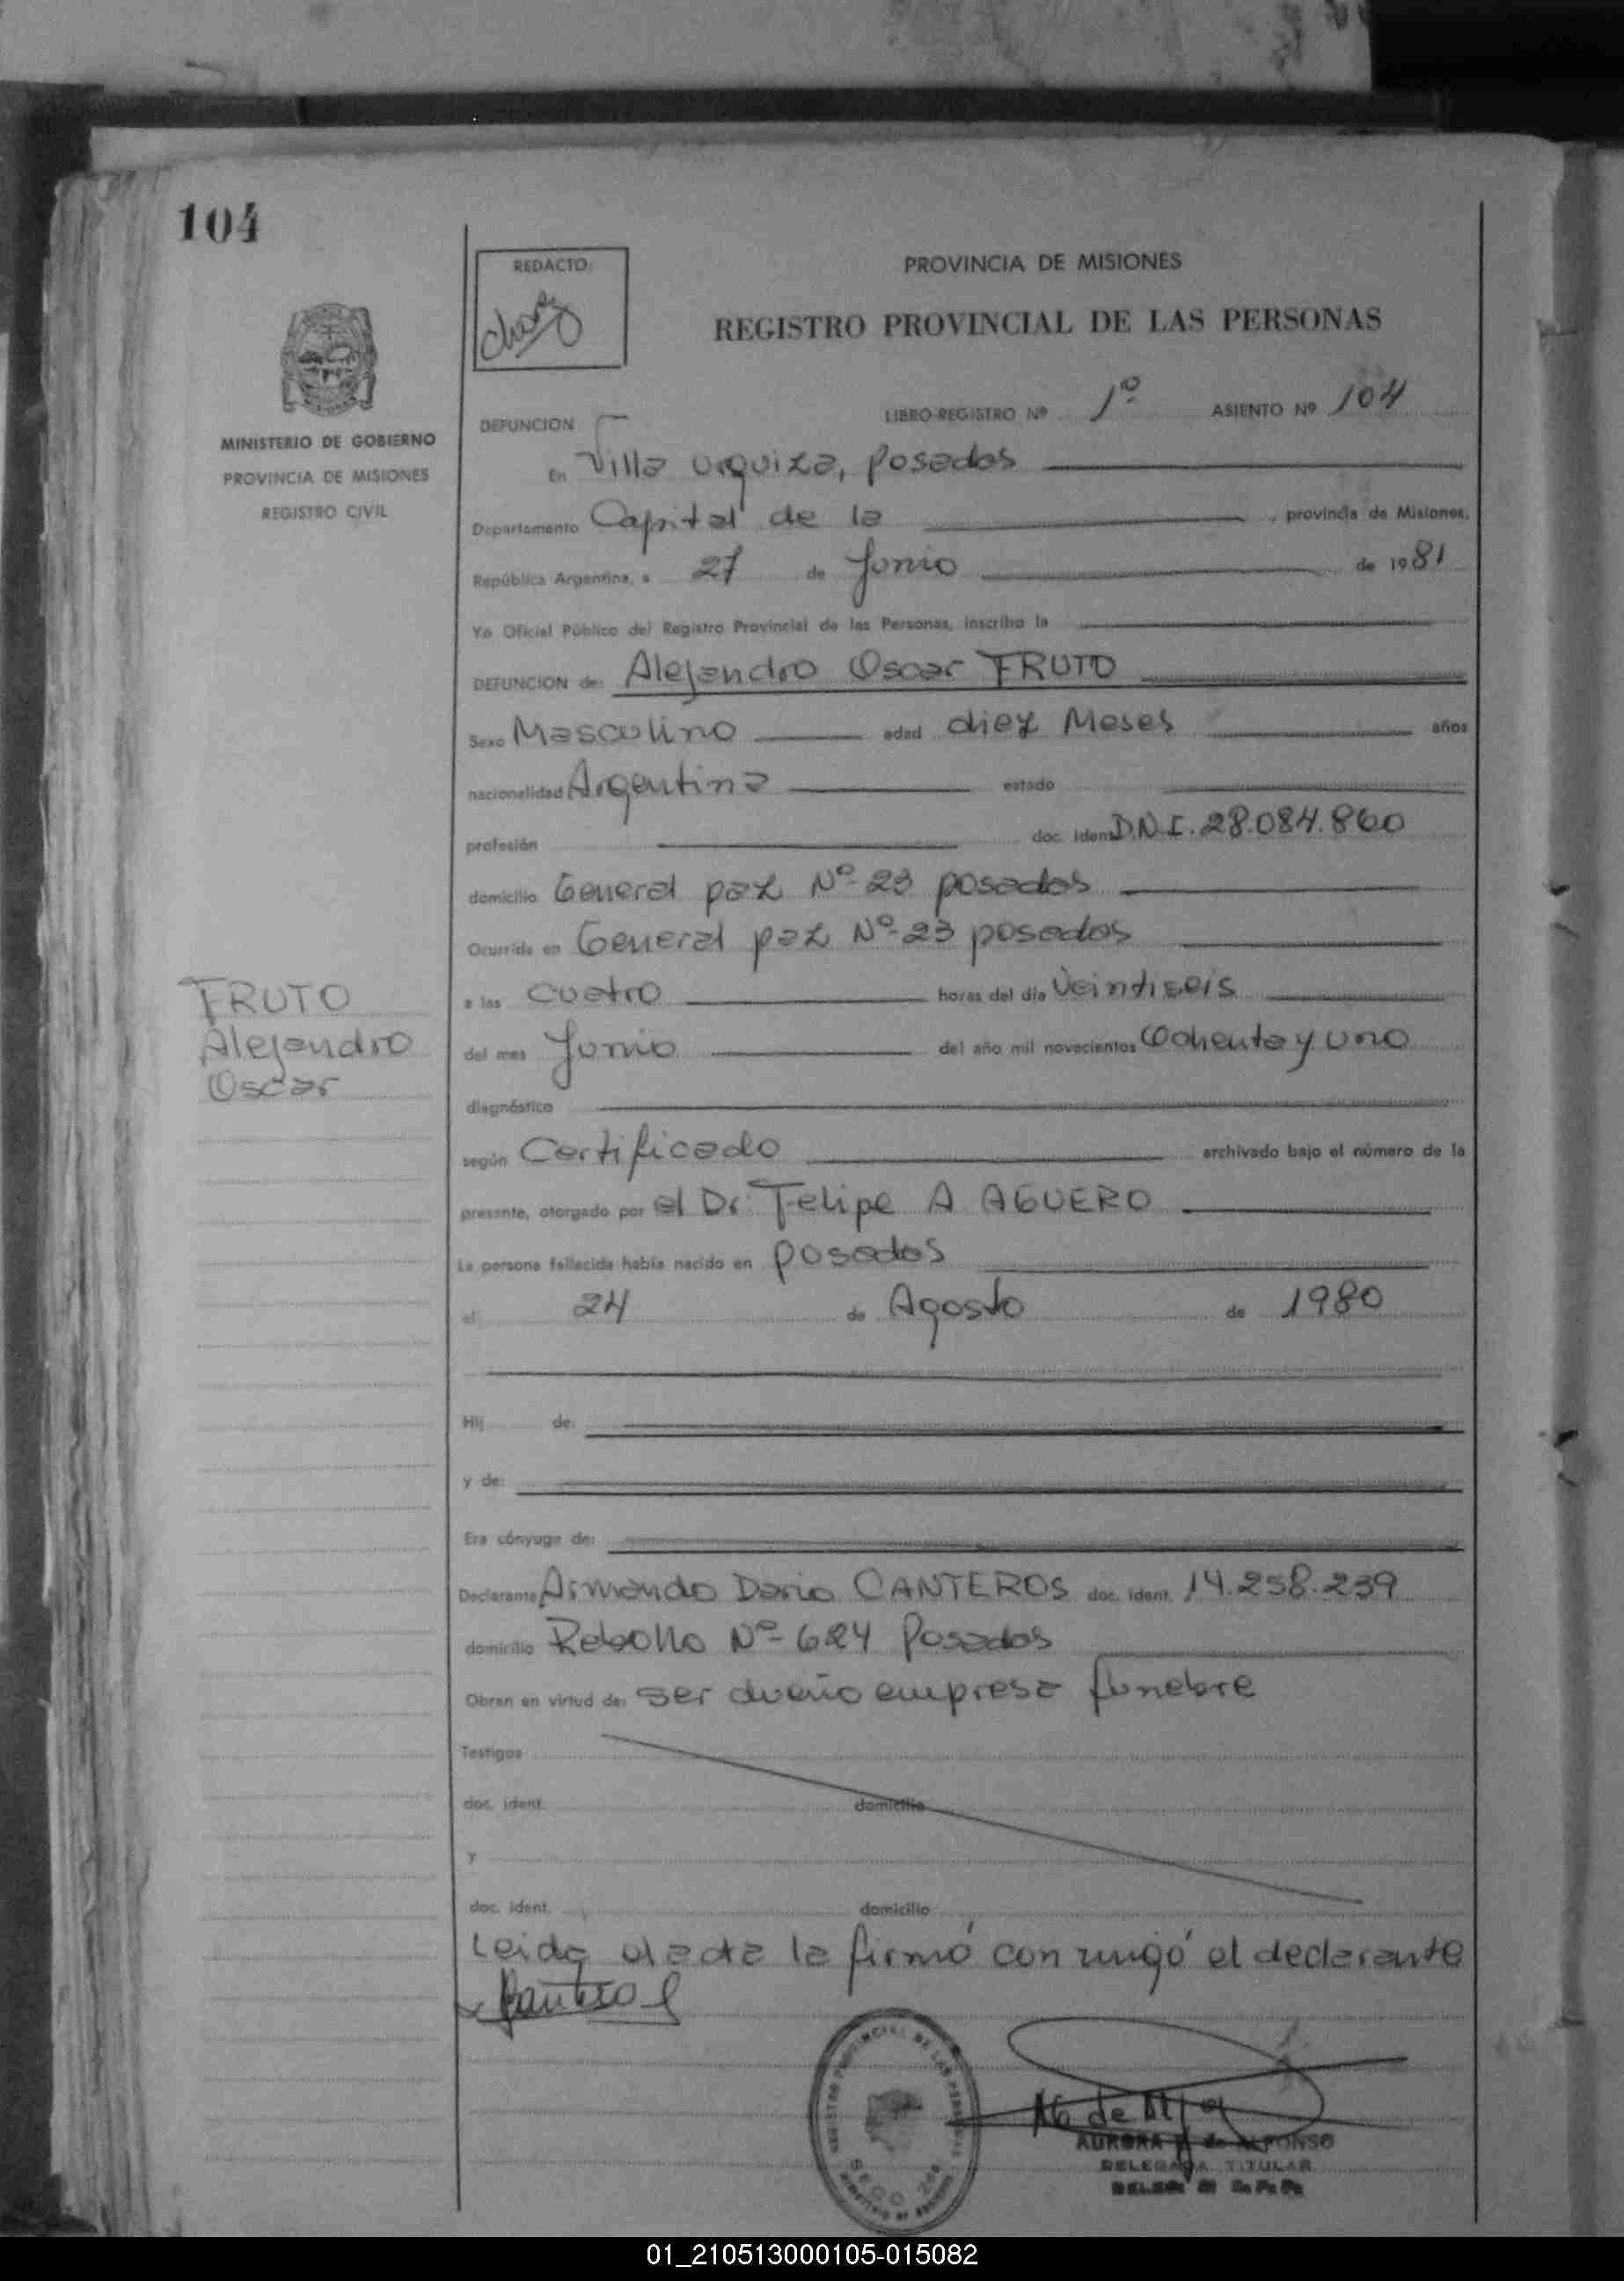 104
REDACTO:
PROVINCIA DE MISIONES
REGISTRO PROVINCIAL DE LAS PERSONAS
MINISTERIO DE GOBIERNO
PROVINCIA DE MISIONES
REGISTRO CIVIL
DEFUNCION
LIBRO-REGISTRO Nº 1º ASIENTO Nº 104
En Villa Urquiza, posadas
Departamento Capital de la , provincia de Misiones,
República Argentina, a 27 de Junio de 1981
Yo Oficial Público del Registro Provincial de las Personas, inscribo la
DEFUNCION de: Alejandro Oscar FRUTO
Sexo Masculino edad diez Meses años
nacionalidad Argentina estado
profesión doc. ident D.N.I. 28.084.860
domicilio General paz Nº 23 posadas
Ocurrida en General paz Nº 23 posadas
a las cuatro horas del día Veintiseis
del mes Junio del año mil novecientos Ochenta y uno
FRUTO
Alejandro
Oscar
diagnóstico
según Certificado archivado bajo el número de la
presente, otorgado por el Dr. Felipe A AGUERO
La persona fallecida había nacido en posadas
el 24 de Agosto de 1980
Hij de:
y de:
Era cónyuge de:
Declarante Armando Dario CANTEROS doc. ident. 14.258.239
domicilio Rebollo Nº 624 Posadas
Obran en virtud de: ser dueño empresa funebre
Testigos
doc. ident. domicilio
y
doc. ident. domicilio
Leida el acta la firmó con migó el declarante
AURORA de ALFONSO
DELEGADA TITULAR
01_210513000105-015082